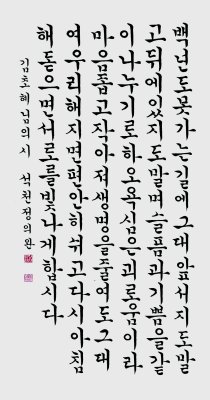 백년도못가는길에그대앞서지도말
고뒤에있지도말며슬픔과기쁨을같
이나누기로하오욕심은괴로움이라
마음좁고작아저생명을줄여도그대
여우리해지면편안히쉬고다시아침
해돋으면서로를빛나게합시다
김초혜님의시 석천정의완